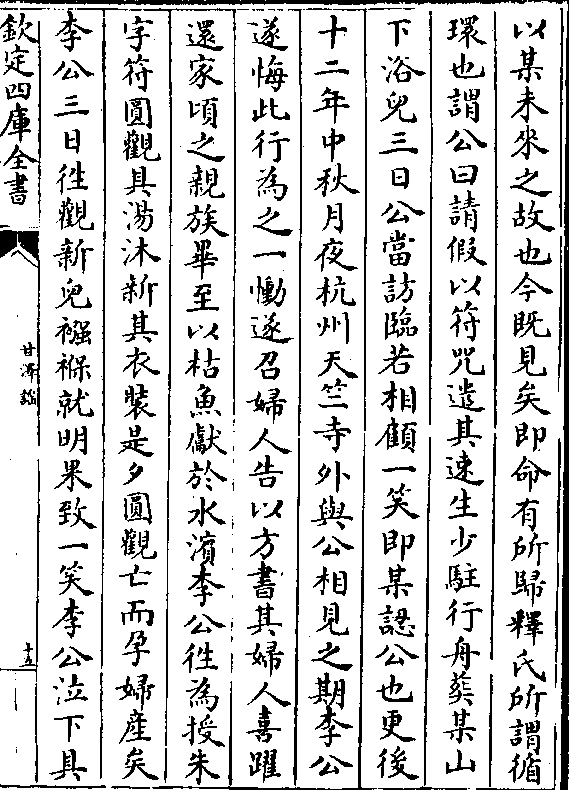 以某未來之故也今既見矣即命有所歸釋氏所謂循
環也謂公曰請假以符咒遣其速生少駐行舟葬某山
下浴兒三日公當訪臨若相顧一笑即某認公也更後
十二年中秋月夜杭州天竺寺外與公相見之期李公
遂悔此行為之一慟遂召婦人告以方書其婦人喜躍
還家頃之親族畢至以枯魚獻於水濱李公往為授朱
字符圓觀具湯沐新其衣裝是夕圓觀亡而孕婦產矣
李公三日往觀新兒襁褓就明果致一笑李公泣下具
欽定四庫全書
甘澤謡
十五